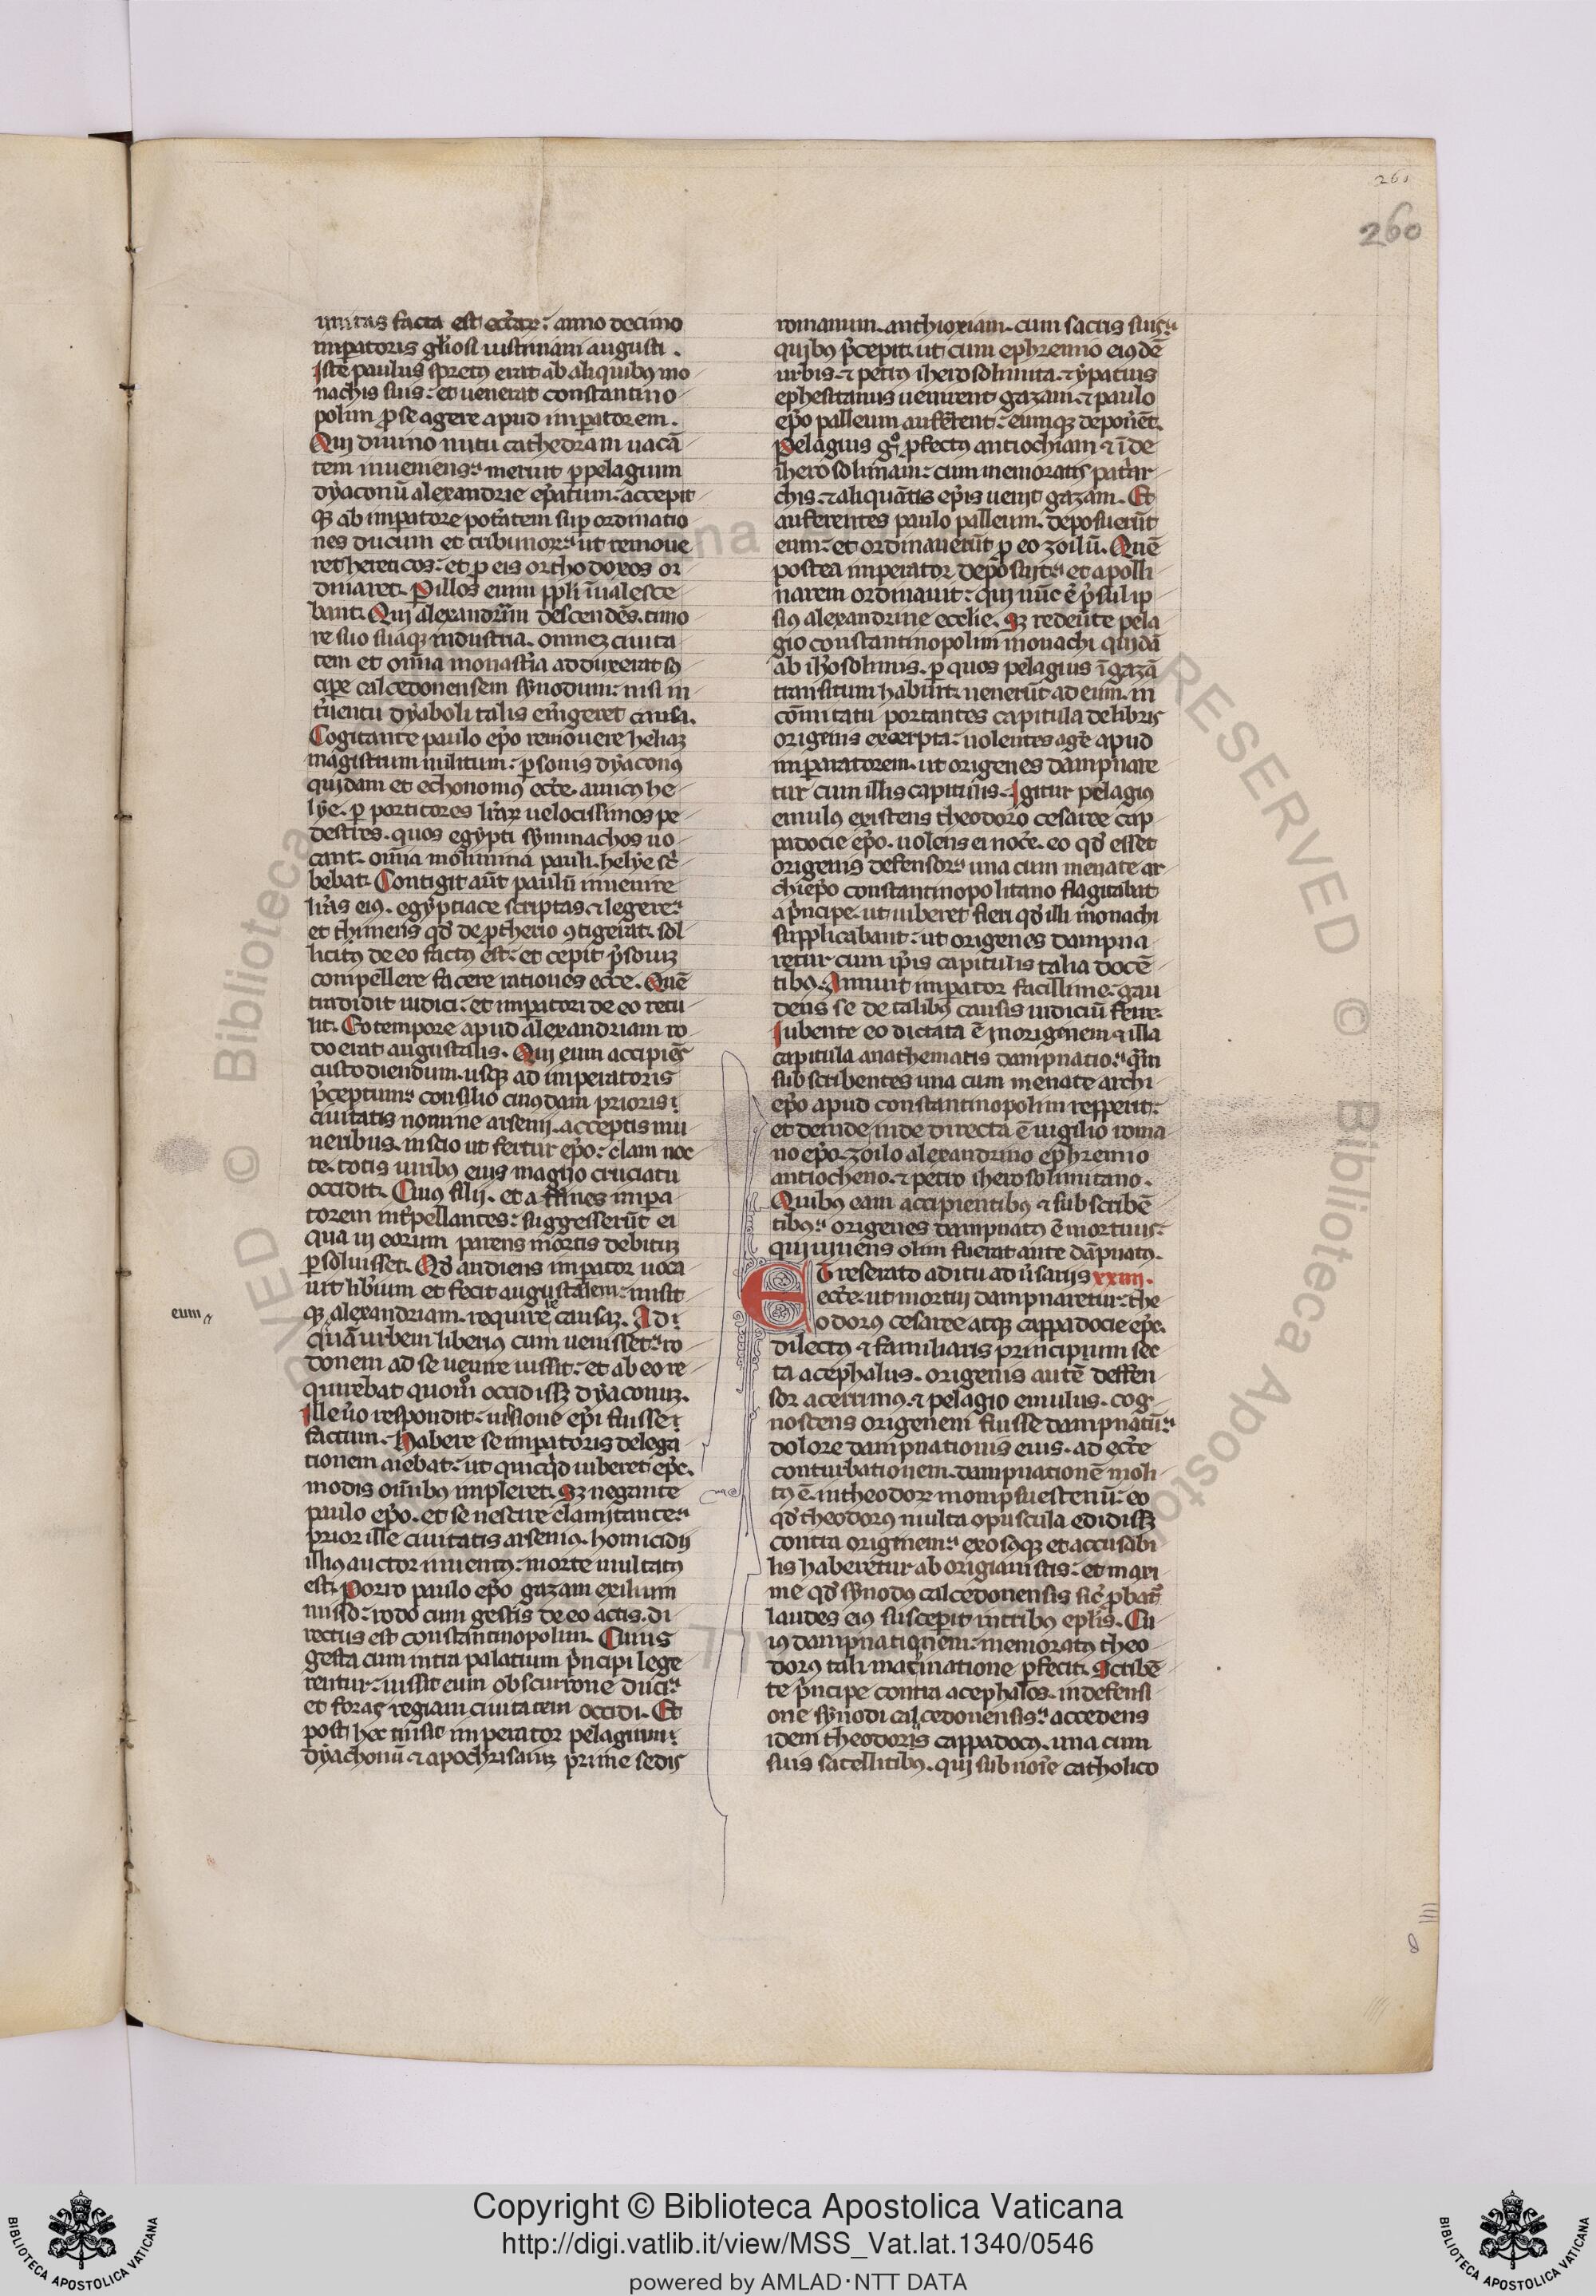 260
260
unitas facta est eccͨar: anno decimo
imꝑatoris glͥosi iustiniani augusti.
Iste paulus spretꝰ erat ab aliquibꝰ mo
nachis suis: et uenerat constantino
polim ꝓ se agere apud imꝑatorem.
Qui diuino nutu cathedram uacā
tem inueniens: meruit ꝑ pelagium
dyaconū alexandrie eꝑatum: accepit
qȝ ab imꝑatore potatem suꝑ ordinatio
nes ducum et tribunoꝝ: ut remoue
ret hereticos: et ꝓ eis orthodoxos or
dinaret. Ꝑ illos enim ppli īualesce
bant. Qui alexandriā descendēs. timo
re suo suaqȝ industria. omneȝ ciuita
tem et oīna monastia adduxerat su
cipe calcedonensem synodum: nisi in
tuentu dyaboli talis emgeret causa.
Cogitante paulo epo remouere heliaȝ
magistrum militum: ꝑsouis dyaconꝰ
quidam et echonomꝰ ecce. amicꝰ he
lye. ꝑ portitores lraꝝ uelocissimos pe
destres. quos egypti symmachos uo
cant. oīna molimina pauli. helye scͥ
bebat. Contigit aūt paulū inuenire
lras eiꝰ. egyptiace scriptas. ⁊ legere:
et timens qd de ꝓtherio ꝯtigerat. sol
licitꝰ de eo factꝰ est: et cepit psouiȝ
compellere facere rationes ecce. Quē
tradidit iudici: et imꝑatori de eo retu
lit. Eo tempore apud alexandriam ro
do erat augustalis. Qui eum accipiēs
custodiendum. usqȝ ad imperatoris
pceptum: consilio cuiꝰdam prioris
ciuitatis nomine arsenij. acceptis mu
neribus. inscio ut fertur epo: clam noc
te. totis uiribꝰ eius magno cruciatu
occidit. Cuiꝰ filij. et affines impa
torem intꝑellantes: suggesserūt ei
qua in eorum parens mortis debitūȝ
ꝑsoluisset. Qd audiens imꝑator uoca
uit libium et fecit augustalem: misit
eum
qȝ alexandriam. requirere causaȝ. Ad
quā urbem liberius cum uenisset: ro
donem ad se uenire iussit: et ab eo re
quirebat quom occidissȝ dyaconuȝ.
Ille uo respondit: iussione epi fuisse
factum. Habere se imꝑatoris delega
tionem aiebat: ut quicqd iuberet epc.
modis oībus impleret. Sȝ negante
paulo epo. et se nescire clamitante:
prior ille ciuitatis arseniꝰ. homicidij
illiꝰ auctor inuentꝰ: morte multatꝰ
est. Porro paulo epo gazam exilium
misso: rodo cum gestis de eo actis. di
rectus est constantinopolim. Cuius
gesta cum intra palatium pncipi lege
rentur: iussit eum obscurrone duci:
et foras regiam ciuitatem occidi. Et
post hec misit imperator pelagium
dyachonū ⁊ apochrisariȝ prime sedis
romanum. anthioxiam. cum sacris suis:
quibꝰ pcepit. ut cum ephremio eiꝰdē
urbis. ⁊ petrꝰ iherosolimita. ⁊ ypatius
ephesitanus uenirent gazam: ⁊ paulo
epo palleum auferent: eumqȝ deponēt.
Pelagius gͦ ꝓfectꝰ antiochiam ⁊ īde
iherosolimam: cum memoratis patar
chis. ⁊ aliquātis epis uenit gazam. Et
auferentes paulo palleum. deposuerūt
eum: et ordinauerūt ꝓ eo zoilū. Quē
postea imperator deposuit: et apolli
narem ordinauit: qui nūc ē psul ip
siꝰ alexandrine ecclie. Sȝ redeūte pela
gio constantinopolim monachi quidā
ab iherosolimis. ꝑ quos pelagius ī gazā
transitum habuit. uenerūt ad eum. in
comitatu portantes capitula de libris
origenis excerpta: uolentes age apud
imꝑaratorem. ut origenes dampnare
tur cum illis capitulis. Igitur pelagiꝰ
emulꝰ existens theodoro cesaree cap
padocie epo. uolens ei nocē. eo qd esset
origenis defensor: una cum menate ar
chiepo constantinopolitano flagitabat
a pncipe. ut iuberet fieri qd illi monachi
supplicabant: ut origenes dampna
retur cum ipis capitulis talia docē
tibꝰ. Annuit imꝑator facillime: gau
dens se de talibꝰ causis iudiciū ferre.
Iubente eo dictata ē in origenem ⁊ illa
capitula anathematis dampnatio: quā
subscribentes una cum menate archi
epo apud constantinopolim repperit:
et deinde inde directa ē uigilio roma
no epo. zoilo alexandrino ephremio
antiocheno. ⁊ petro iherosolimitano.
Quibus eam accipientibꝰ ⁊ subscribē
tibꝰ: origenes dampnatꝰ ē mortuus:
qui uiuens olim fuerat ante dāpnatꝰ.
Et reserato aditu aduisarijs xxiiij.
ecce. ut mortui dampnaretur: the
odorꝰ cesaree atqȝ cappadocie epc.
dilectꝰ ⁊ familiaris principum sec
ta acephalus. origenis autē deffen
sor acerrimꝰ. ⁊ pelagio emulus. cog
noscens origenem fuisse dampnatū:
dolore dampnationis eius. ad ecce
conturbationem. dampnationē moli
tꝰ ē. in theodoꝝ mompsuestenū: eo
qd theodorꝰ multa opuscula edidissȝ
contra originem: exosaqȝ et accusabi
lis haberetur ab origianistis: et maxi
me qd synodꝰ calcedonensis sic pbat
laudes eiꝰ susceperit in tribꝰ eplis. Cu
iꝰ dampnationem: memoratꝰ theo
dorꝰ tali macinatione ꝑfecit. Scribē
te pncipe contra acephalos. in defensi
one synodi calcedonensis: accedens
idem theodorꝰ cappadocꝰ. una cum
suis satellitibꝰ. qui sub noīe catholico
Copyright © Biblioteca Apostolica Vaticana
http://digi.vatlib.it/view/MSS_Vat.lat.1340/0546
powered by AMLAD·NTT DATA
BIBLIOTECA APOSTOLICA VATICANA
BIBLIOTECA APOSTOLICA VATICANA